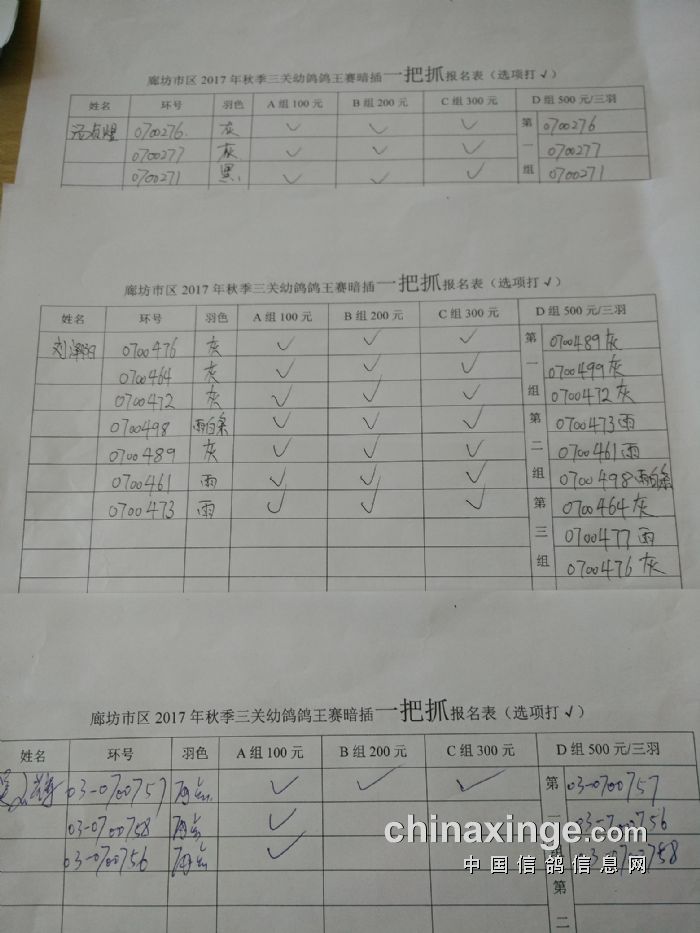 廊坊市区 2017 年秋季三关幼鸽鸽王赛暗插一把抓报名表（选项打√）
姓名 环号 羽色 A 组 100 元 B 组 200 元 C 组 300 元 D 组 500 元/三羽
0700276 灰 ✓ ✓ ✓ 第 0700276
0700277 灰 ✓ ✓ ✓ 一 0700277
0700271 黑 ✓ ✓ ✓ 组 0700271
廊坊市区 2017 年秋季三关幼鸽鸽王赛暗插一把抓报名表（选项打√）
姓名 环号 羽色 A 组 100 元 B 组 200 元 C 组 300 元 D 组 500 元/三羽
刘 0700476 灰 ✓ ✓ ✓ 第 0700489 灰
0700464 灰 ✓ ✓ ✓ 一 0700499 灰
0700472 灰 ✓ ✓ ✓ 组 0700472 灰
0700498 雨白条 ✓ ✓ ✓ 第 0700473 雨
0700489 灰 ✓ ✓ ✓ 二 0700461 雨
0700461 雨 ✓ ✓ ✓ 组 0700498 雨白条
0700473 雨 ✓ ✓ ✓ 第 0700464 灰
三 0700477 雨
组 0700476 灰
廊坊市区 2017 年秋季三关幼鸽鸽王赛暗插一把抓报名表（选项打√）
姓名 环号 羽色 A 组 100 元 B 组 200 元 C 组 300 元 D 组 500 元/三羽
03-0700757 ✓ ✓ ✓ 第 03-0700757
03-0700758 ✓ 一 03-0700756
03-0700756 ✓ 组 03-0700758
第
二
chinaxinge.com
中国信鸽信息网